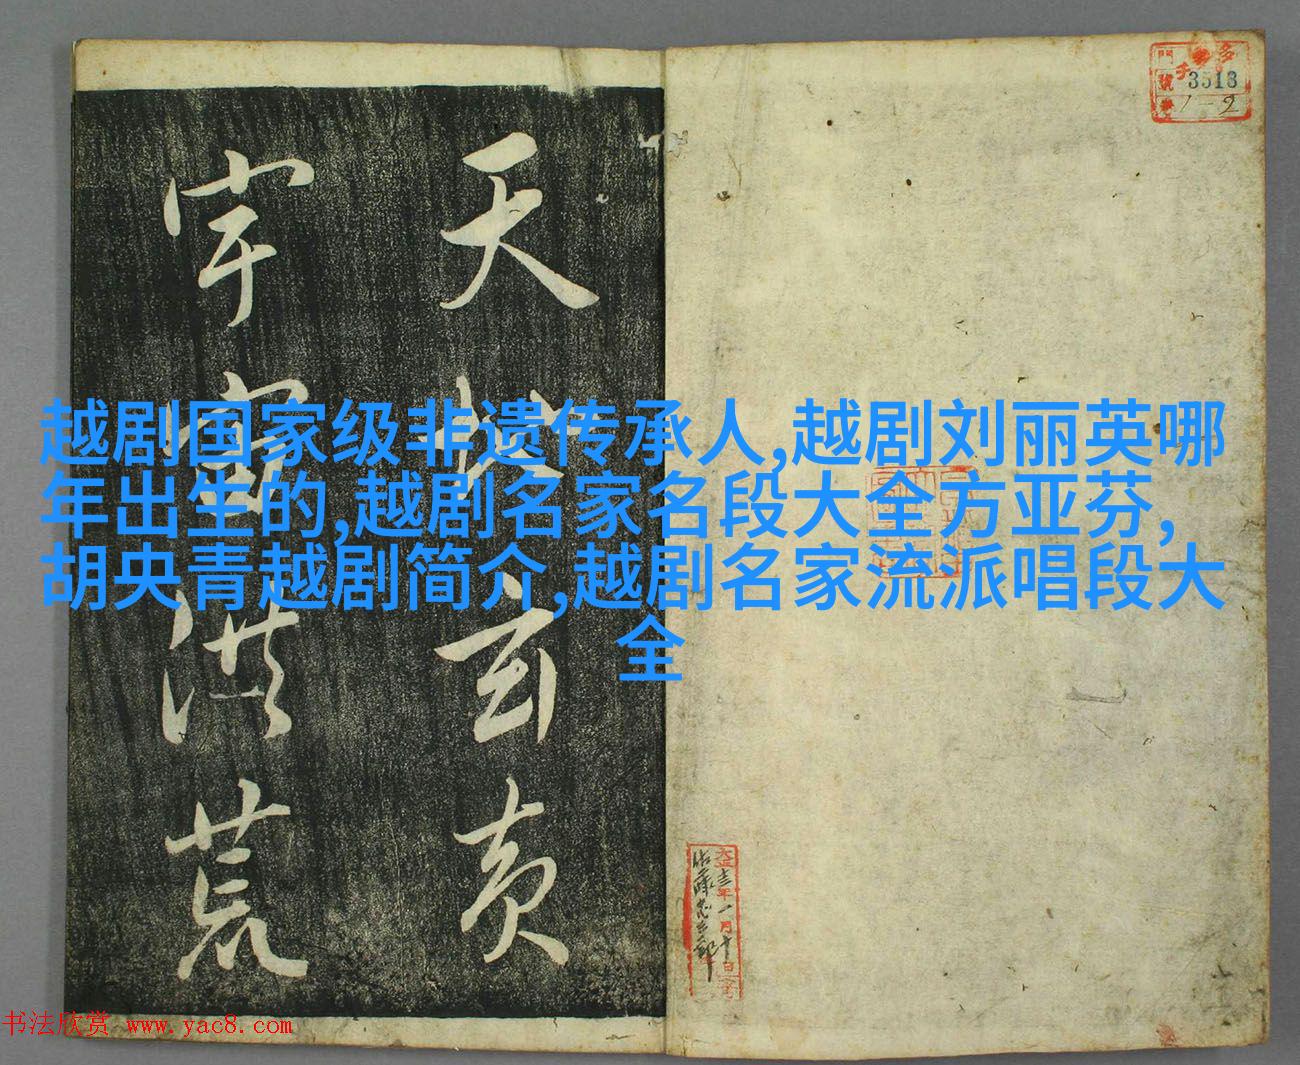 天地玄黄
宇宙洪荒
3513
1-2
越剧国家级非遗传承人,越剧刘丽英哪
年出生的,越剧名家名段大全方亚芬,
胡央青越剧简介,越剧名家流派唱段大
全
大正十三年一月十日
书法欣赏 www.yac8.com